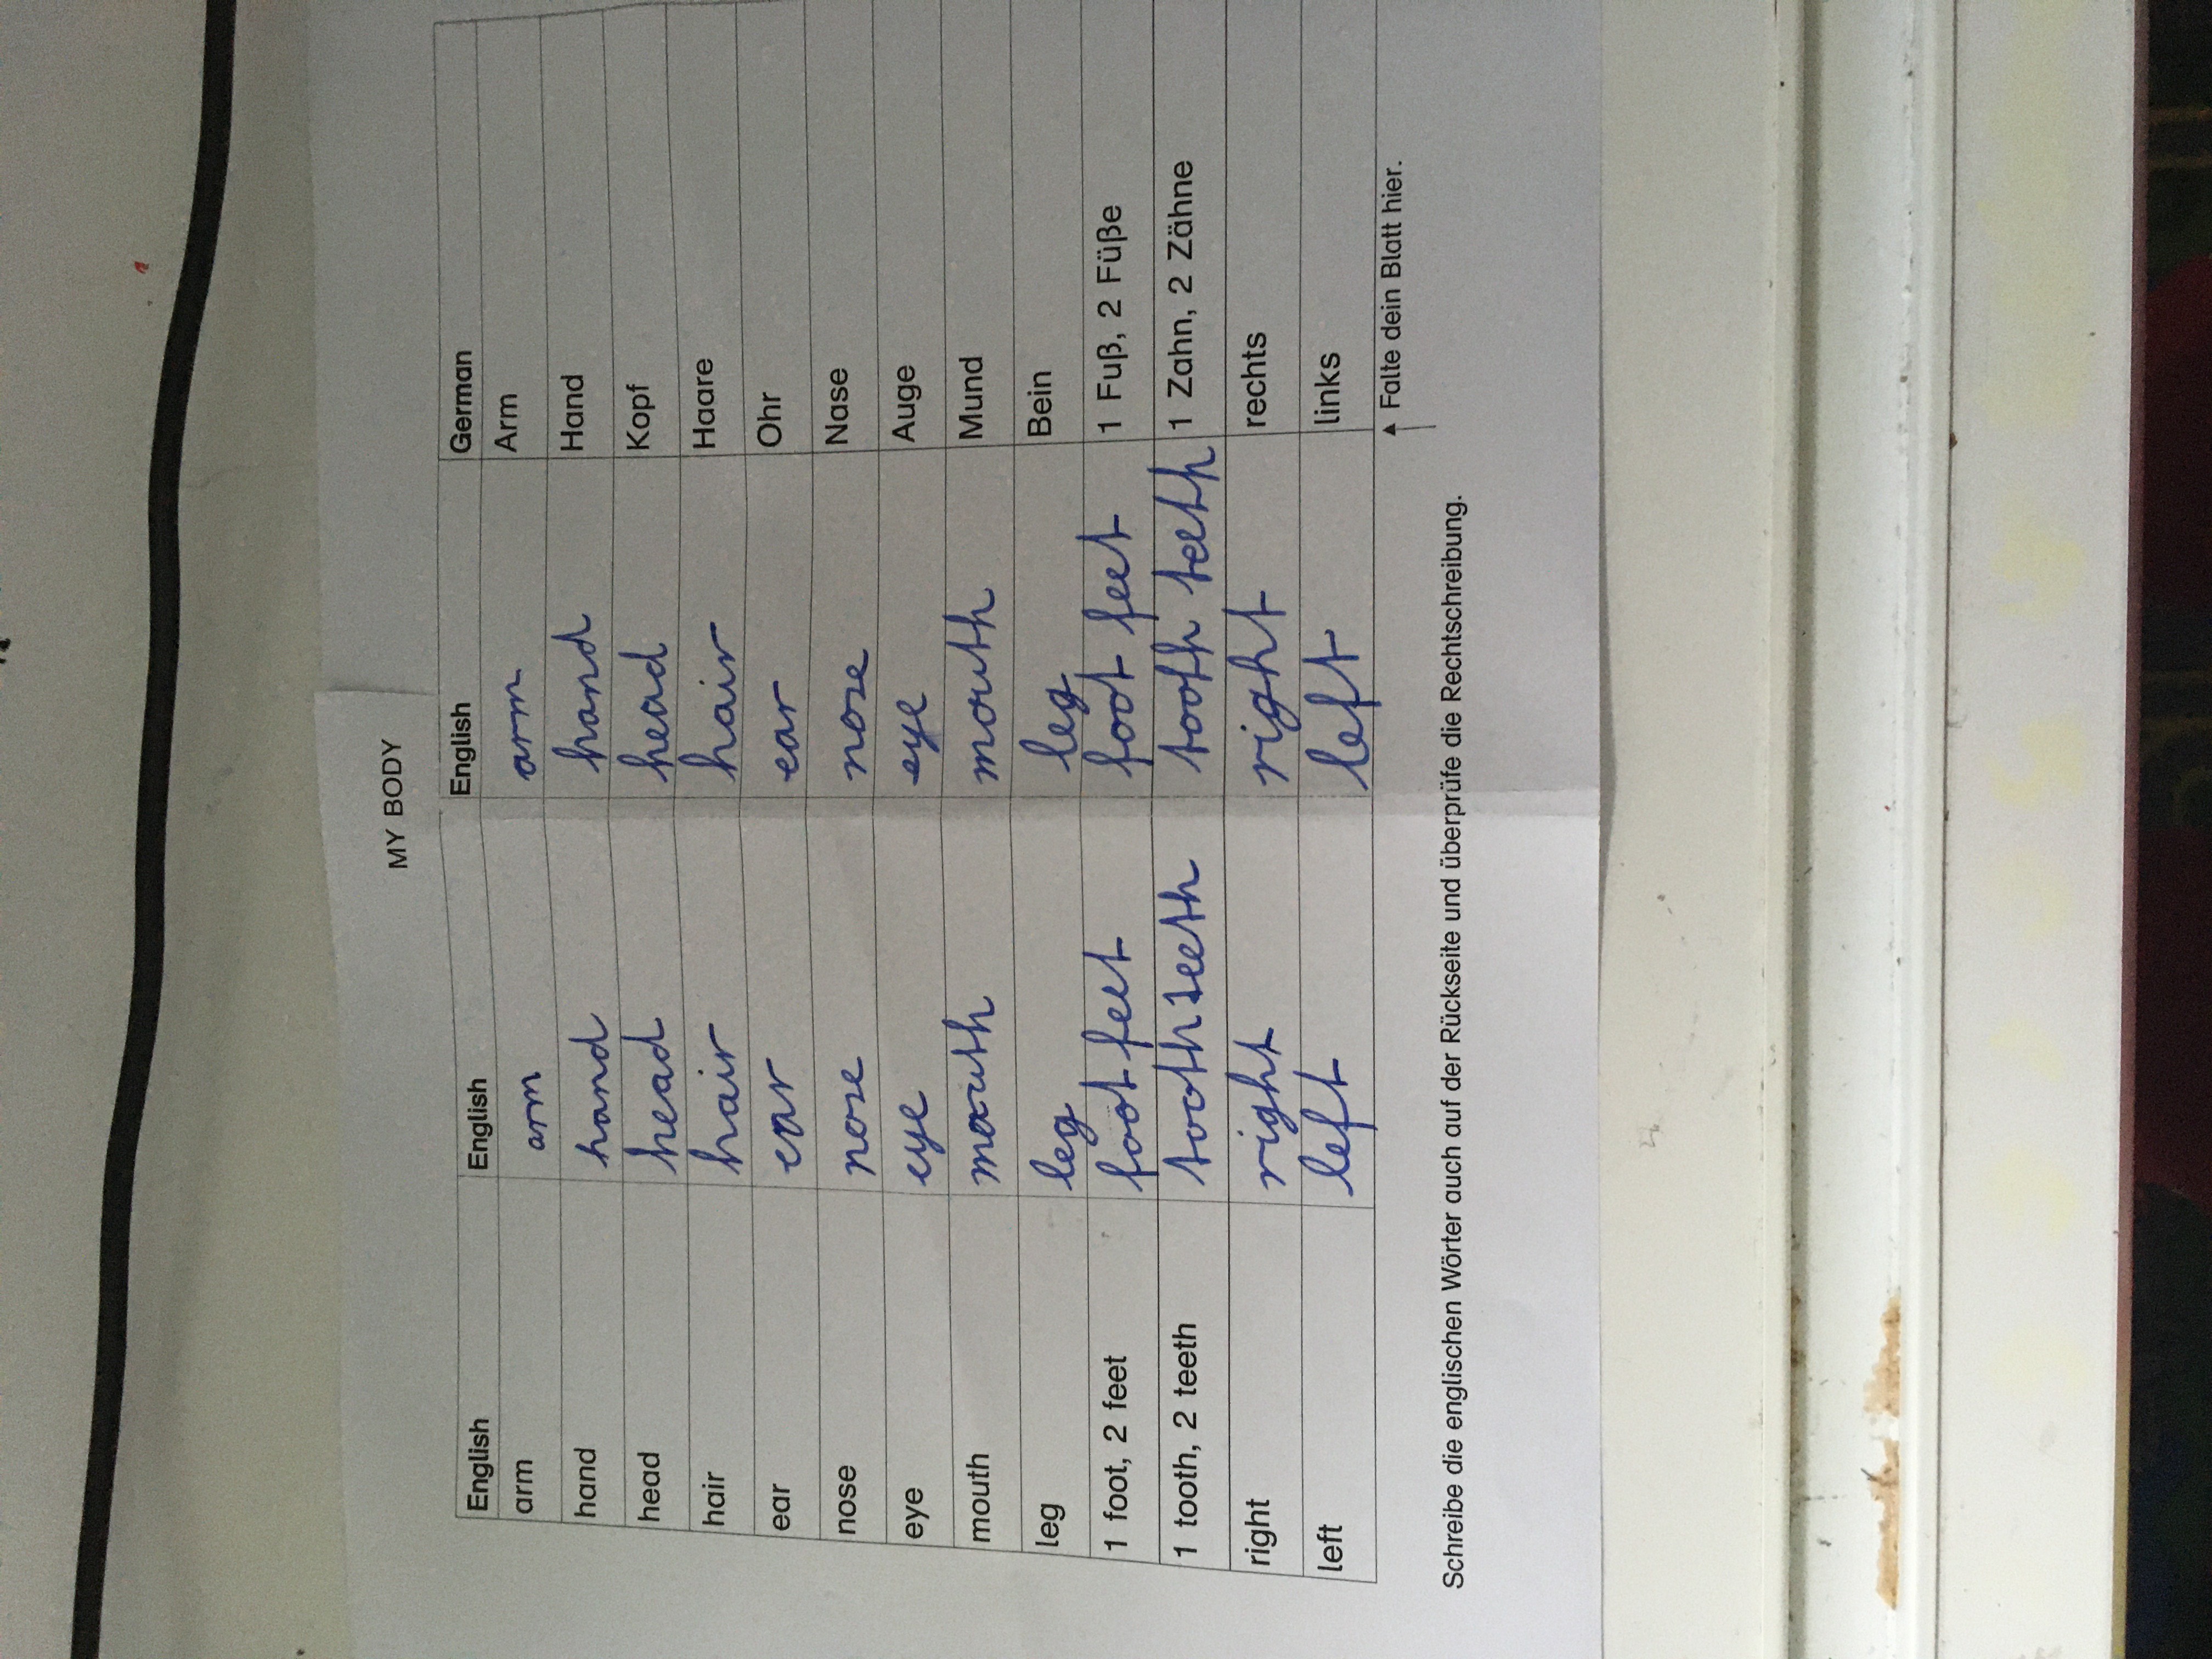 MY BODY
English English English German
arm arm arm Arm
hand hand hand Hand
head head head Kopf
hair hair hair Haare
ear ear ear Ohr
nose nose nose Nase
eye eye eye Auge
mouth mouth mouth Mund
leg leg leg Bein
1 foot, 2 feet foot feet foot feet 1 Fuß, 2 Füße
1 tooth, 2 teeth tooth teeth tooth teeth 1 Zahn, 2 Zähne
right right right rechts
left left left links
Falte dein Blatt hier.
Schreibe die englischen Wörter auch auf der Rückseite und überprüfe die Rechtschreibung.